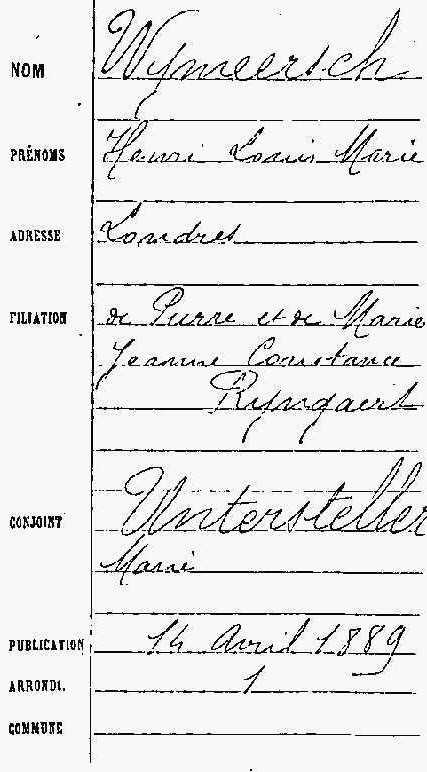 NOM Wymeersch
PRÉNOMS Henri Louis Marie
ADRESSE Londres
FILIATION de Pierre et de Marie
Jeanne Constance
Ryngaert
CONJOINT Untersteller
Marie
PUBLICATION 14 Avril 1889
ARRONDI. 1
COMMUNE